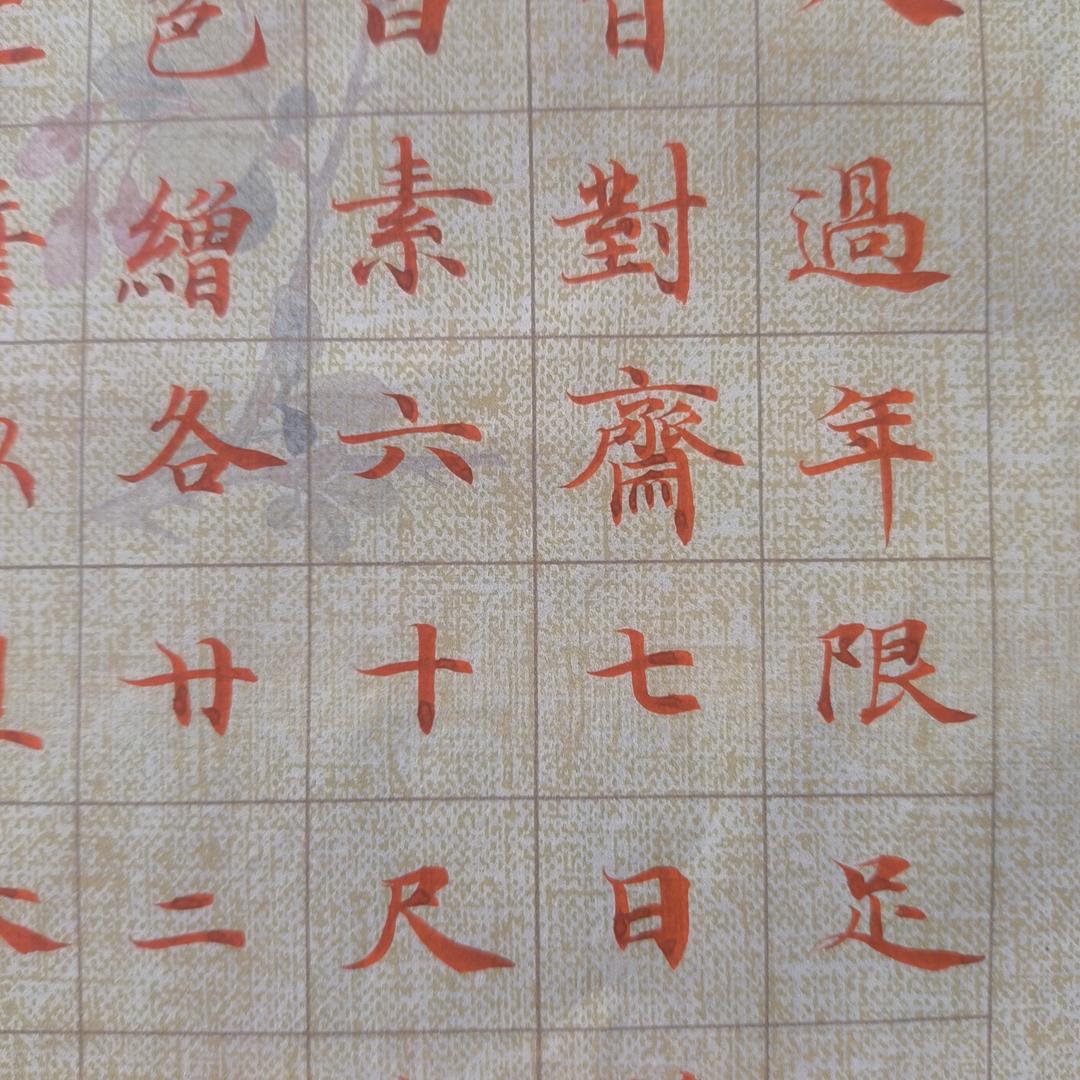 過年限足
對齋七日
素六十尺
色繒各廿二